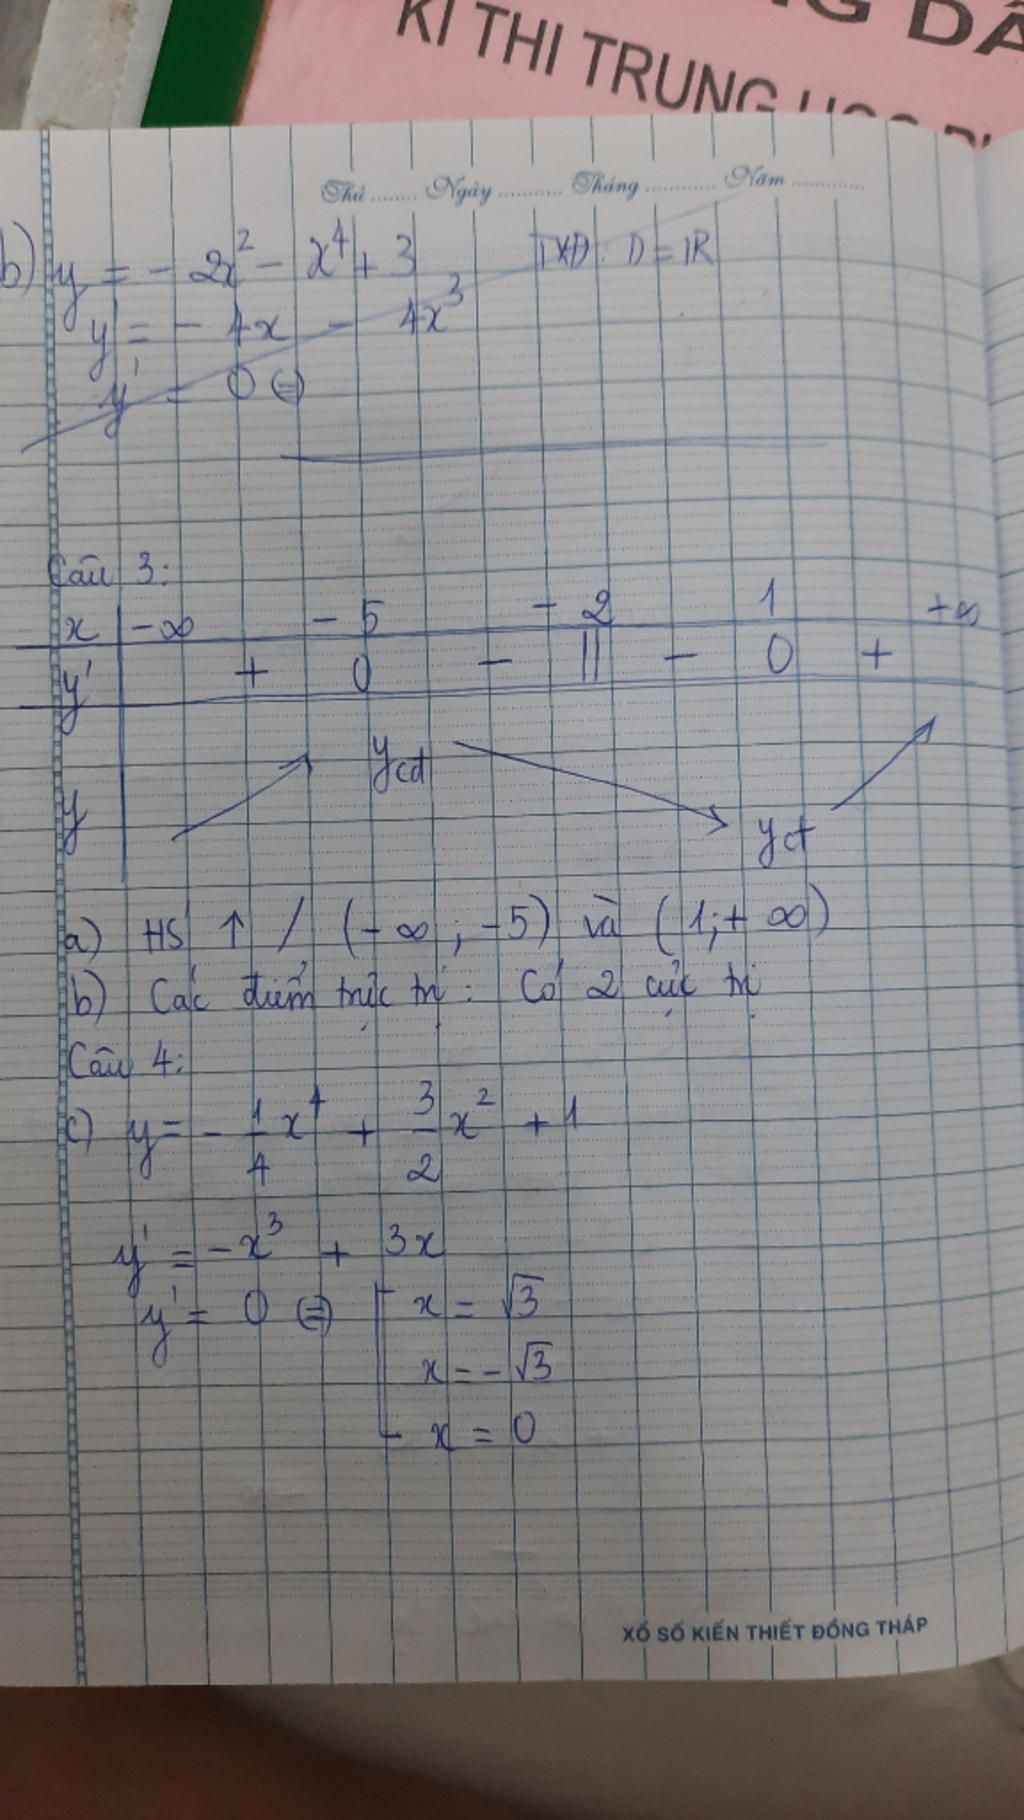 KÌ THI TRUNG
Thứ ........ Ngày ........... Tháng ............ Năm ............
b) y = - 2x² - x⁴ + 3 TXĐ: D = IR
y' = - 4x - 4x³
y' = 0 ⇔
Câu 3:
x -∞ - 5 - 2 1 +∞
y' + 0 - || - 0 +
y ycđ yct
a) HS ↑ / (-∞ ; -5) và (1; + ∞)
b) Các điểm trực trị: Có 2 cực trị
Câu 4:
c) y = - 1/4 x⁴ + 3/2 x² + 1
y' = - x³ + 3x
y' = 0 ⇔ [ x = √3
x = - √3
x = 0
XỔ SỐ KIẾN THIẾT ĐỒNG THÁP